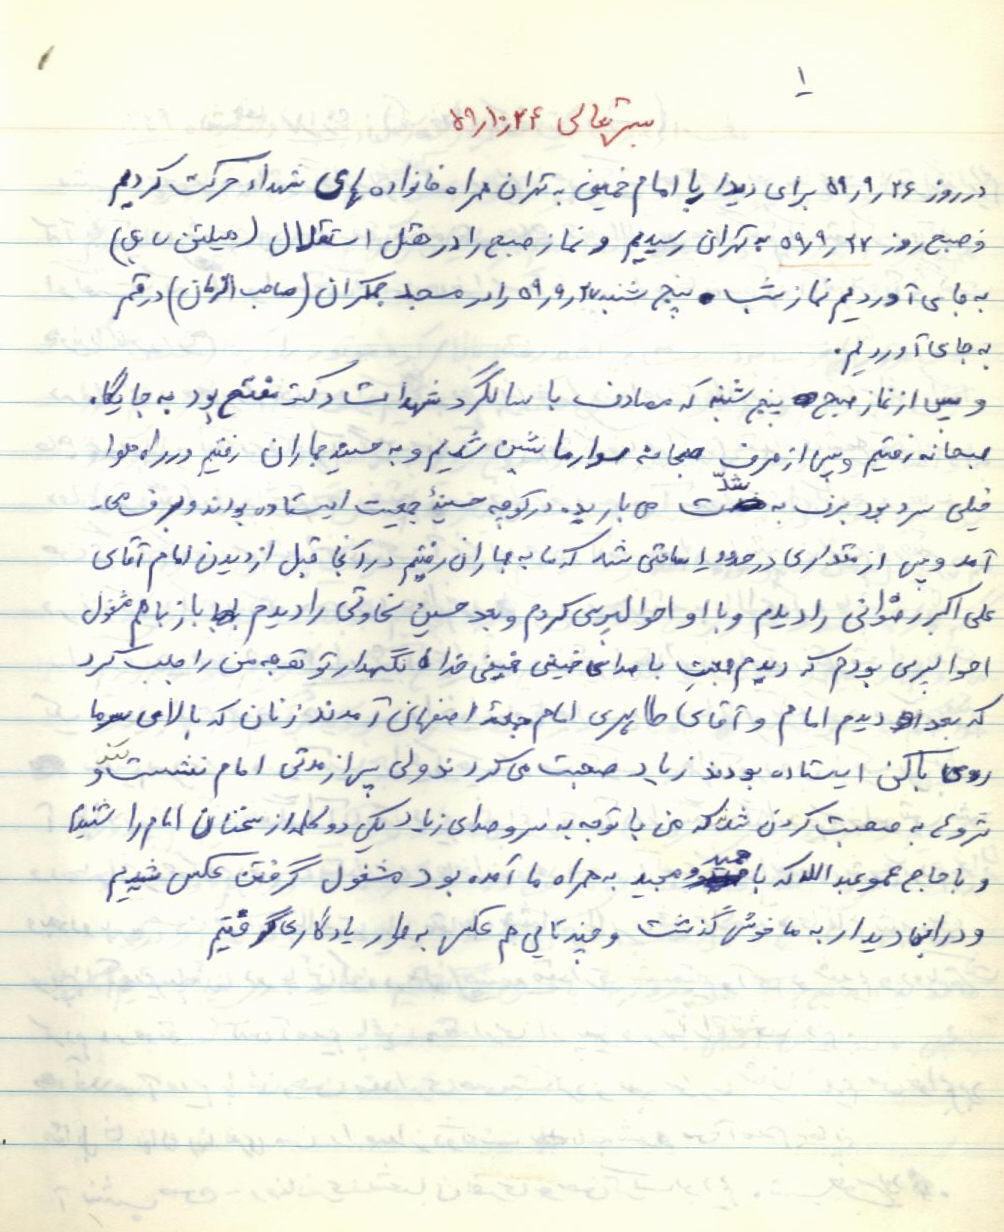 ۱
بسمه تعالی ۵۹/۱۰/۲۴
در روز ۵۹/۹/۲۶ برای دیدار با امام خمینی به تهران همراه خانواده های شهداء حرکت کردیم
و صبح روز ۵۹/۹/۲۷ به تهران رسیدیم و نماز صبح را در هتل استقلال (هیلتن سابق)
به جای آوردیم نماز شب پنج شنبه ۵۹/۹/۲۷ را در مسجد جمکران (صاحب الزمان) در قم
به جای آوردیم.
و پس از نماز صبح پنج شنبه که مصادف با سالگرد شهادت دکتر مفتح بود به جایگاه
صبحانه رفتیم و پس از صرف صبحانه سوار ماشین شدیم و به حسینیه جماران رفتیم در راه هوا
خیلی سرد بود برف به شدّت می بارید. در کوچه حسینیۀ جمعیت ایستاده بودند و برف می
آمد و پس از مقداری در حدود ساعتی شد که ما به جماران رفتیم در آنجا قبل از دیدن امام آقای
علی اکبر رضوانی را دیدم و با او احوالپرسی کردم و بعد حسین سخاوتی را دیدم باز با هم مشغول
احوالپرسی بودم که دیدم جمعیت با صدای خمینی خمینی خدا نگهدار تو توجه من را جلب کرد
که بعد دیدم امام و آقای طاهری امام جمعۀ اصفهان آمدند زنان که بالای سرما
روی بالکن ایستاده بودند زیاد صحبت می کردند ولی پس از مدتی امام نشستند و
شروع به صحبت کردن شد که من با توجه به سر و صدای زیاد یکی دو کلمه از سخنان امام را شنیدم
و با حاج عمو عبدالله که با حمید و مجید به همراه ما آمده بود مشغول گرفتن عکس شدیم
و در اینجا دیدار به ما خوش گذشت و چند تایی هم عکس به طور یادگاری گرفتیم